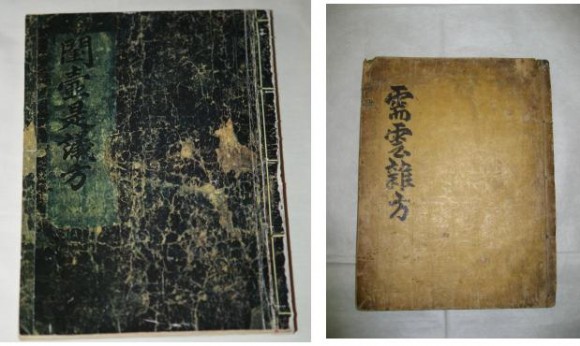 閨壼是議方
需雲雜方